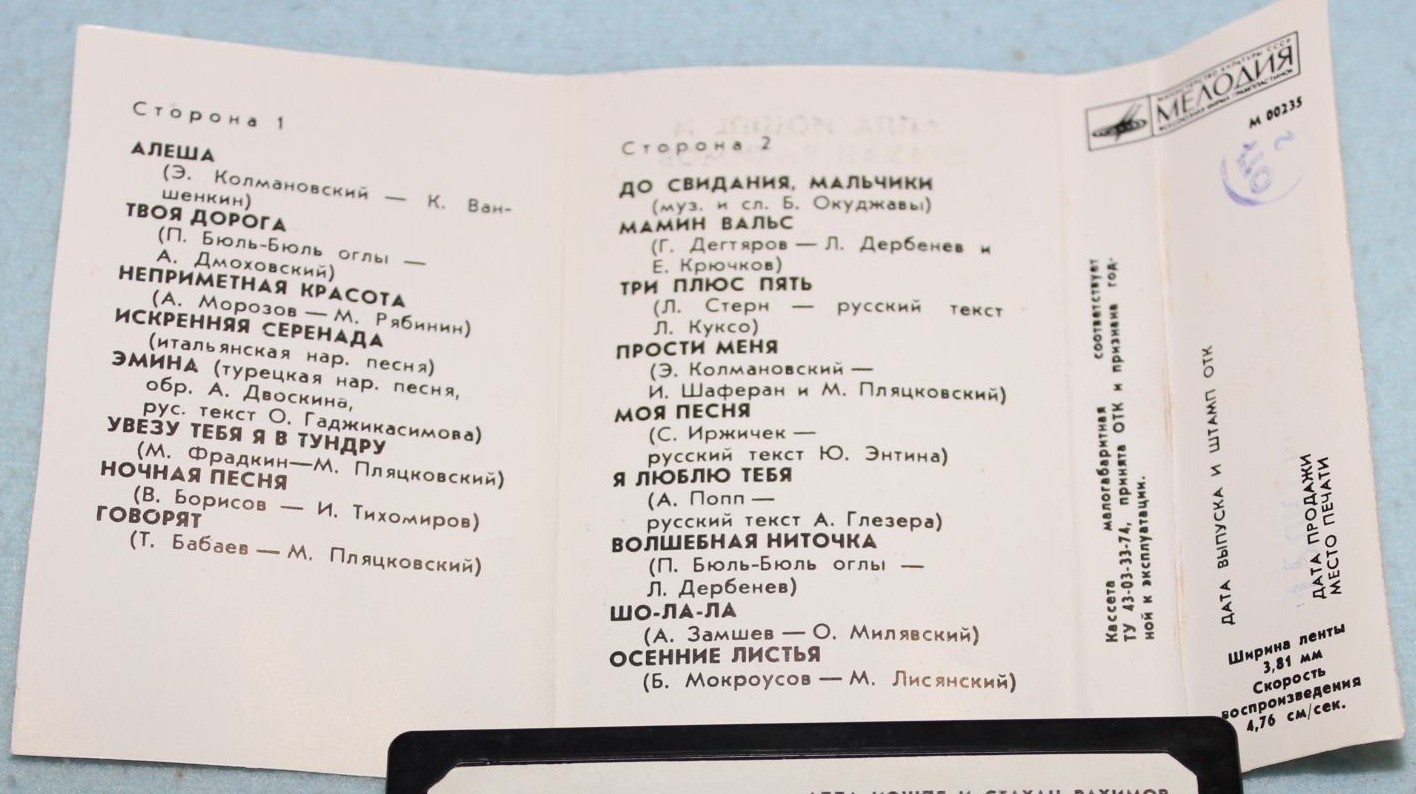 Сторона 1
АЛЕША
(Э. Колмановский — К. Ван-
шенкин)
ТВОЯ ДОРОГА
(П. Бюль-Бюль оглы —
А. Дмоховский)
НЕПРИМЕТНАЯ КРАСОТА
(А. Морозов — М. Рябинин)
ИСКРЕННЯЯ СЕРЕНАДА
(итальянская нар. песня)
ЭМИНА (турецкая нар. песня,
обр. А. Двоскина,
рус. текст О. Гаджикасимова)
УВЕЗУ ТЕБЯ Я В ТУНДРУ
(М. Фрадкин—М. Пляцковский)
НОЧНАЯ ПЕСНЯ
(В. Борисов — И. Тихомиров)
ГОВОРЯТ
(Т. Бабаев — М. Пляцковский)
Сторона 2
ДО СВИДАНИЯ, МАЛЬЧИКИ
(муз. и сл. Б. Окуджавы)
МАМИН ВАЛЬС
(Г. Дегтяров — Л. Дербенев и
Е. Крючков)
ТРИ ПЛЮС ПЯТЬ
(Л. Стерн — русский текст
Л. Куксо)
ПРОСТИ МЕНЯ
(Э. Колмановский —
И. Шаферан и М. Пляцковский)
МОЯ ПЕСНЯ
(С. Иржичек —
русский текст Ю. Энтина)
Я ЛЮБЛЮ ТЕБЯ
(А. Попп —
русский текст А. Глезера)
ВОЛШЕБНАЯ НИТОЧКА
(П. Бюль-Бюль оглы —
Л. Дербенев)
ШО-ЛА-ЛА
(А. Замшев — О. Милявский)
ОСЕННИЕ ЛИСТЬЯ
(Б. Мокроусов — М. Лисянский)
Кассета малогабаритная соответствует
ТУ 43-03-33-74, принята ОТК и признана год-
ной к эксплуатации.
МИНИСТЕРСТВО КУЛЬТУРЫ СССР
МЕЛОДИЯ
ВСЕСОЮЗНАЯ ФИРМА ГРАМПЛАСТИНОК
М 00235
ОТК
2
ДАТА ВЫПУСКА И ШТАМП ОТК
ДАТА ПРОДАЖИ
МЕСТО ПЕЧАТИ
Ширина ленты
3,81 мм
Скорость
воспроизведения
4,76 см/сек.
АЛЛА ИОШПЕ И СТАХАН РАХИМОВ